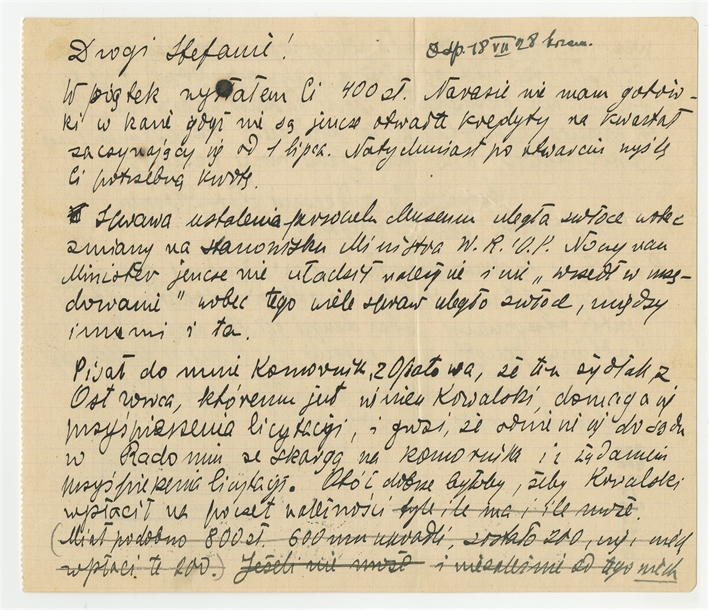 Drogi Stefanie! 18 VII 28
W piątek wysłałem Ci 400 zł. Narazie nie mam gotów-
ki w kasie gdyż nie są jeszcze otwarte kredyty na kwartał
zaczynający się od 1 lipca. Natychmiast po otwarciu wyślę
Ci potrzebną kwotę.
Sprawa ustalenia personelu Museum uległa zwłoce wobec
zmiany na stanowisku Ministra W.R.i O.P. Nowy pan
Minister jeszcze nie                 należycie i nie „wszedł w urzę-
dowanie" wobec tego wiele spraw uległo zwłoce, między
innemi i ta.
Pisał do mnie Komornik z Opatowa, że ten żydłak z
Ostrowca, któremu jest winien Kowalski, domaga się
przyśpieszenia licytacji, i grozi, że odniesie się do sądu
w Radomiu ze skargą na komornika i z żądaniem
przyśpieszenia licytacji. Otóż dobrze byłoby, żeby Kowalski
wpłacił na poczet należności tyle ile ma i ile może.
(Miał podobno 800 zł. 600 mu ukradli, zostało 200, niech
wpłaci te 200.) Jeżeli nie może i niezależnie od tego niech